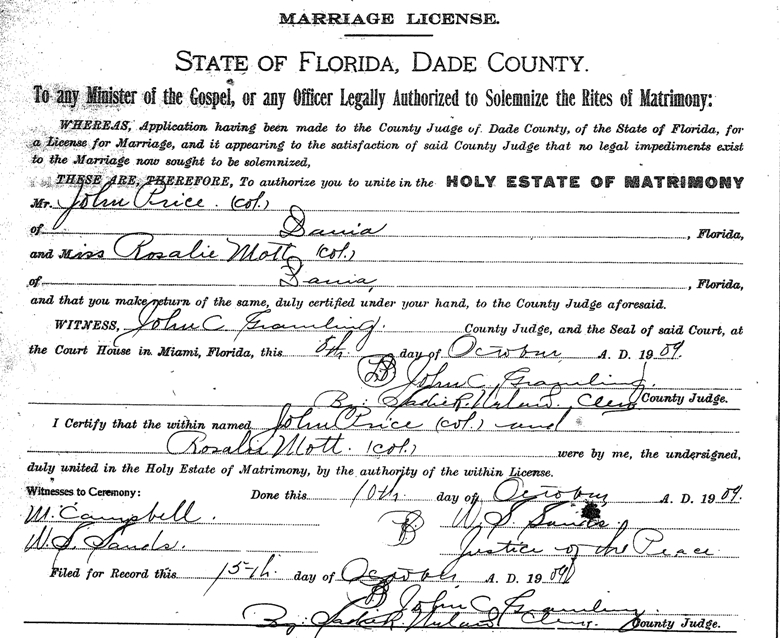 MARRIAGE LICENSE.
STATE OF FLORIDA, DADE COUNTY.
To any Minister of the Gospel, or any Officer Legally Authorized to Solemnize the Rites of Matrimony:
WHEREAS, Application having been made to the County Judge of Dade County, of the State of Florida, for
a License for Marriage, and it appearing to the satisfaction of said County Judge that no legal impediments exist
to the Marriage now sought to be solemnized,
THESE ARE, THEREFORE, To authorize you to unite in the HOLY ESTATE OF MATRIMONY
Mr. John Price (col.)
of Dania, Florida,
and Miss Rosalie Mott (col.)
of Dania, Florida,
and that you make return of the same, duly certified under your hand, to the County Judge aforesaid.
WITNESS, John C. Gramling. County Judge, and the Seal of said Court, at
the Court House in Miami, Florida, this 8th day of October A. D. 1909.
John C. Gramling.
By: Sadie R. Clerk County Judge.
I Certify that the within named John Price (col.) and
Rosalie Mott. (col.) were by me, the undersigned,
duly united in the Holy Estate of Matrimony, by the authority of the within License.
Witnesses to Ceremony: Done this 10th day of October A. D. 1909.
M. Campbell. W. S. Sands.
W. S. Sands. Justice of the Peace
Filed for Record this 15th day of October A. D. 1909
John C. Gramling
By: Sadie R. Clerk. County Judge.